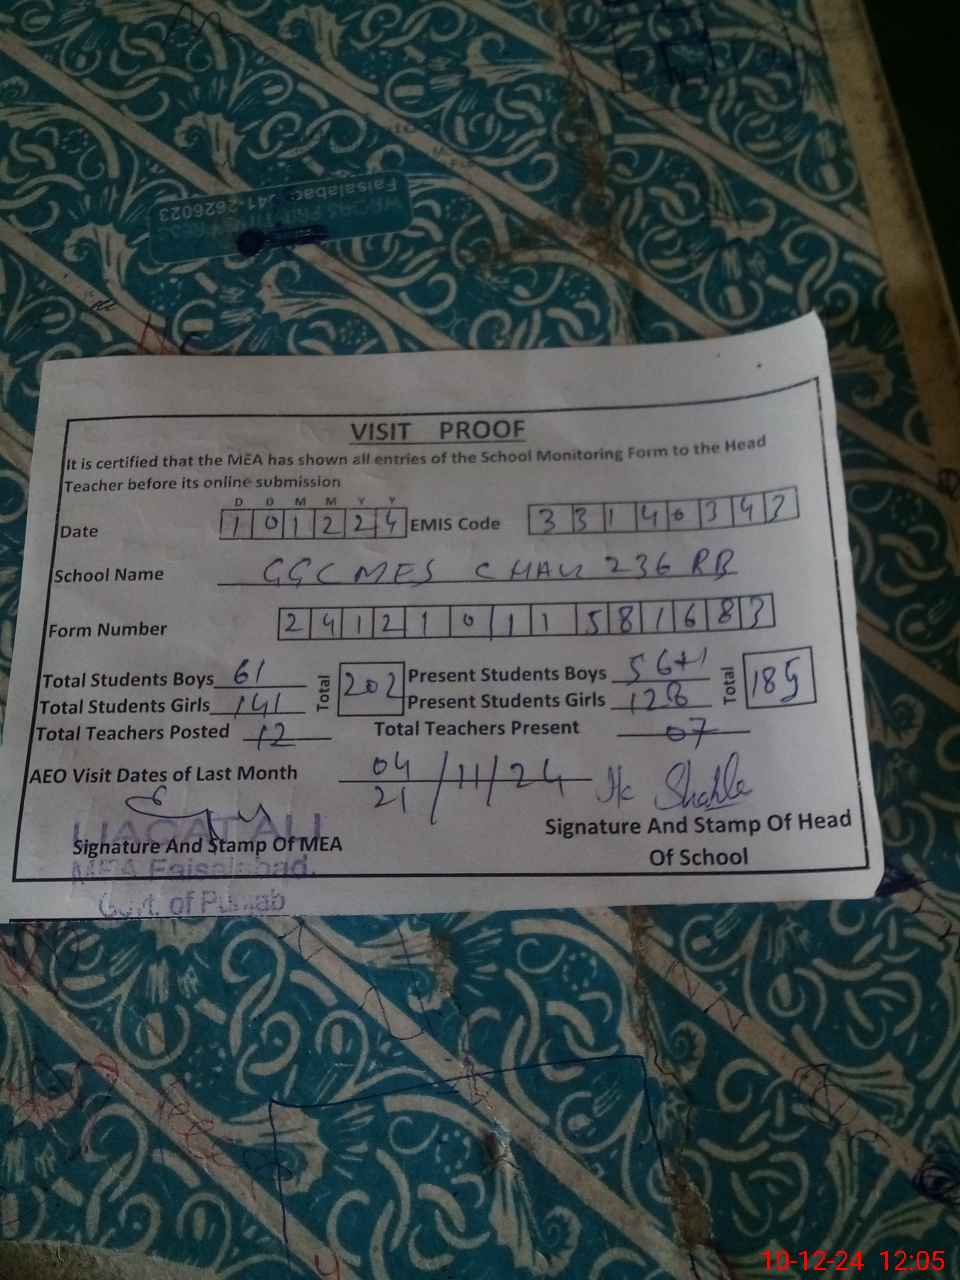 Faisalabad 041-2626023
VISIT PROOF
It is certified that the MEA has shown all entries of the School Monitoring Form to the Head
Teacher before its online submission
D D M M Y Y
Date 1 0 1 2 2 4 EMIS Code 3 3 1 4 0 3 4 3
School Name GGCMES CHAK 236 RB
Form Number 2 4 1 2 1 0 1 1 5 8 1 6 8 3
Total Students Boys 61 Total 202 Present Students Boys 56+1 Total 185
Total Students Girls 141 Present Students Girls 128
Total Teachers Posted 12 Total Teachers Present 07
AEO Visit Dates of Last Month 04/21/11/24
LIAQAT ALI
Signature And Stamp Of MEA
MEA Faisalabad.
Govt. of Punjab
Signature And Stamp Of Head
Of School
10-12-24 12:05